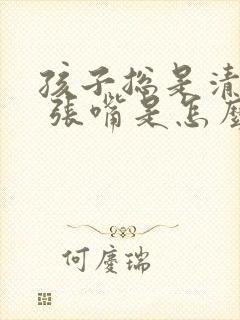 孩子總是清
張嘴是怎麼
何慶瑞